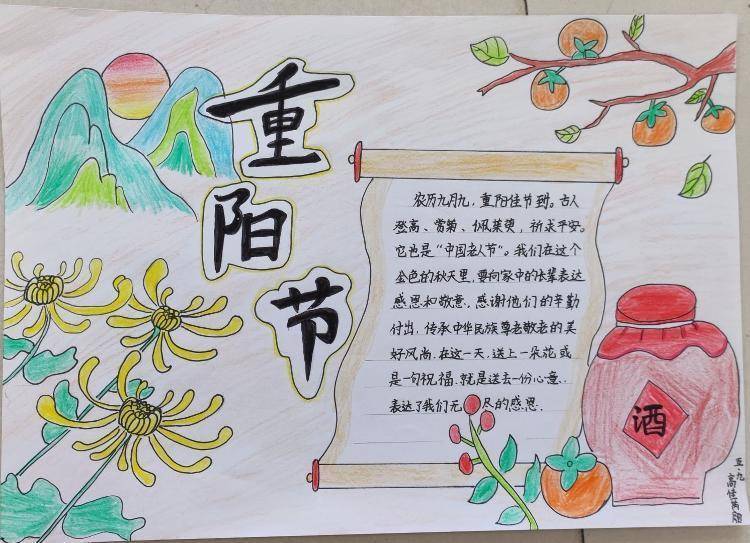 重
阳
节
农历九月九，重阳佳节到。古人
登高、赏菊、佩茱萸，祈求平安。
它也是“中国老人节”。我们在这个
金色的秋天里，要向家中的长辈表达
感恩和敬意，感谢他们的辛勤
付出，传承中华民族尊老敬老的美
好风尚。在这一天，送上一朵花或
是一句祝福，就是送去一份心意，
表达了我们无尽的感恩。
酒
五·九
高佳